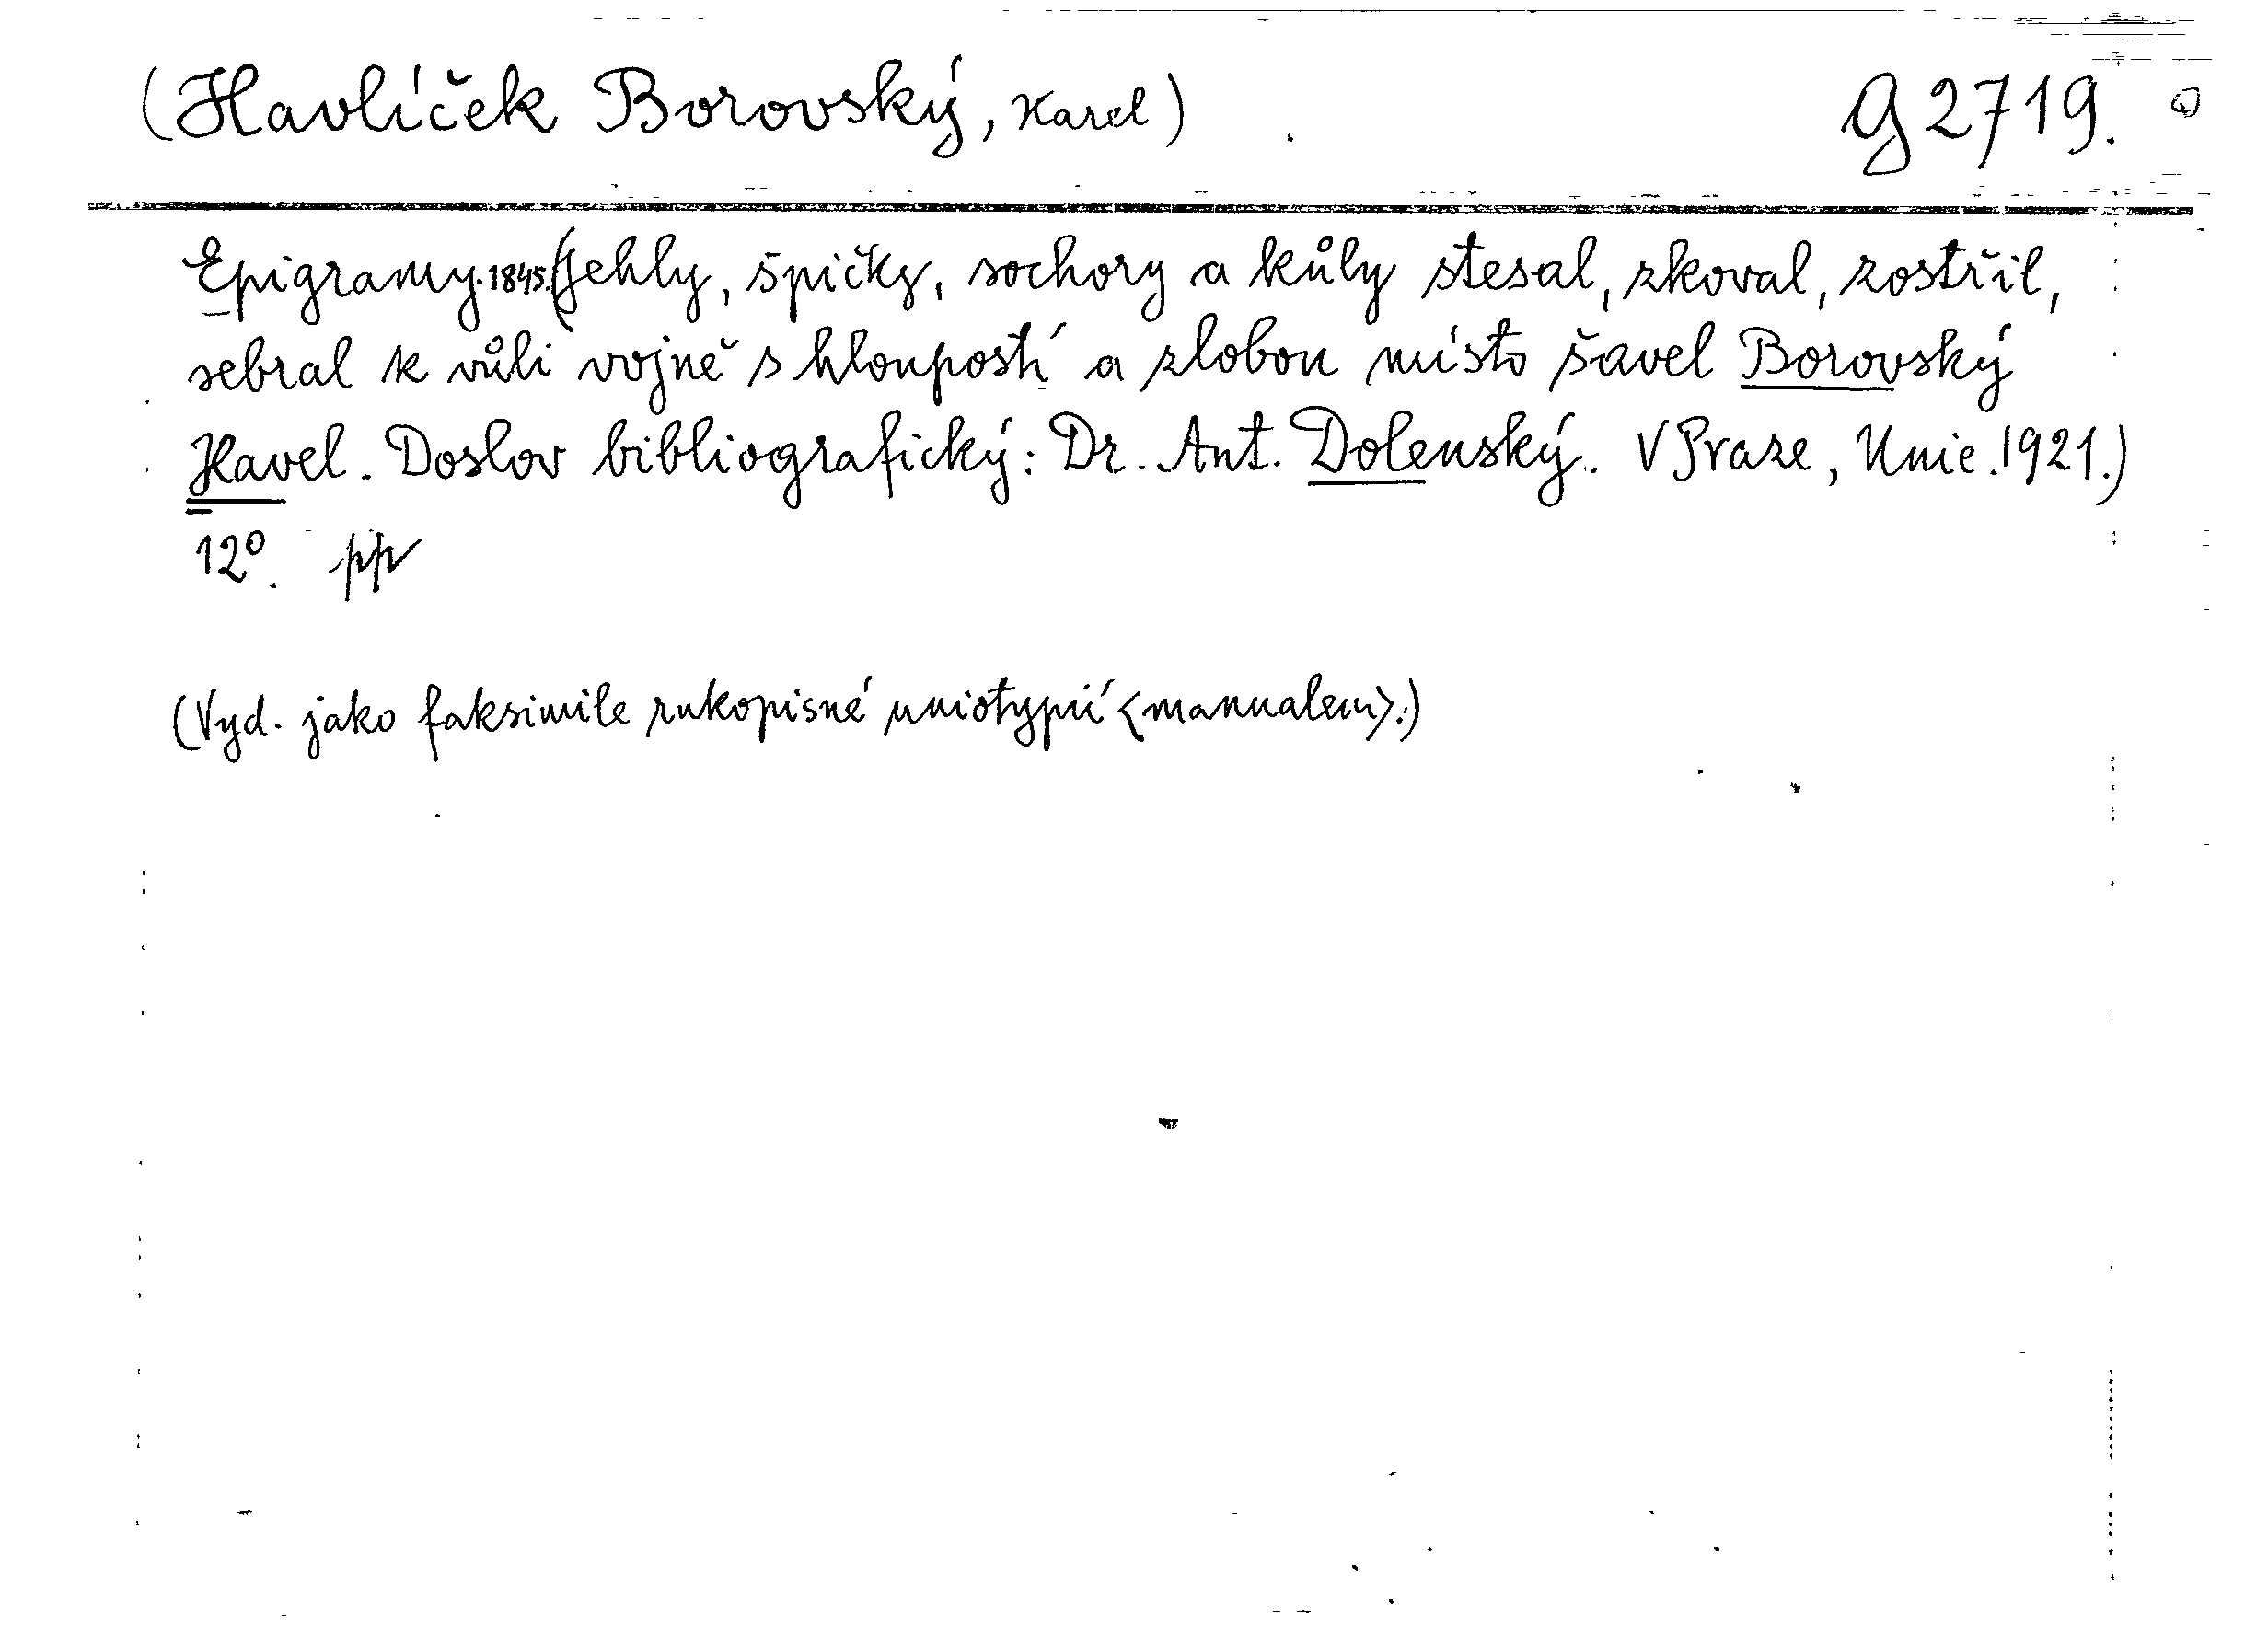 (Havlíček Borovský, Karel) g 2719.
Epigramy. 1845. (Jehly, špičky, sochory a kůly stesal, zkoval, zostřil,
sebral k vůli vojně s hloupostí a zlobou místo šavel Borovský
Havel. Doslov bibliografický: Dr. Ant. Dolenský. V Praze, Unie. 1921.)
12°. pp
(Vyd. jako faksimile rukopisné uniotypií <manualem>.)